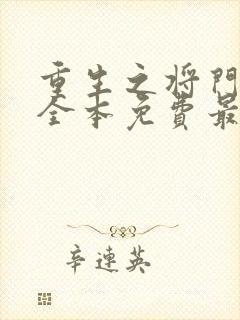 重生之将门
全本免费最
辛连英